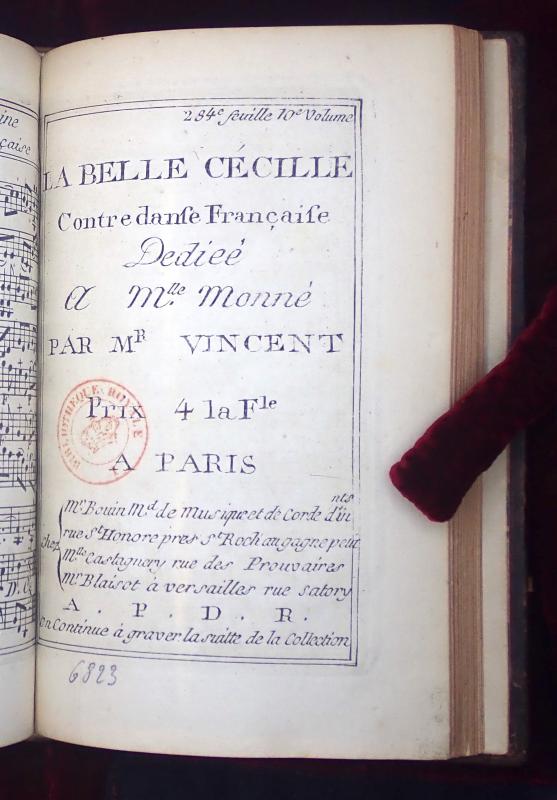 ine
çaise
284e feuille 10e Volume
LA BELLE CÉCILLE
Contredanſe Françaiſe
Dedieé
A Mlle Monné
PAR MR VINCENT
Prix 4 la Fle
BIBLIOTHEQUE ROYALE
A PARIS
chez
Mr Bouin Md de Musique et de Corde d'innts
rue St Honore pres St Roch au gagne petit
Mlle Castagnery rue des Prouvaires
Mr Blaisot à versailles rue satory
A. P. D. R.
on Continue à graver la suitte de la Collection
D.C.
6823